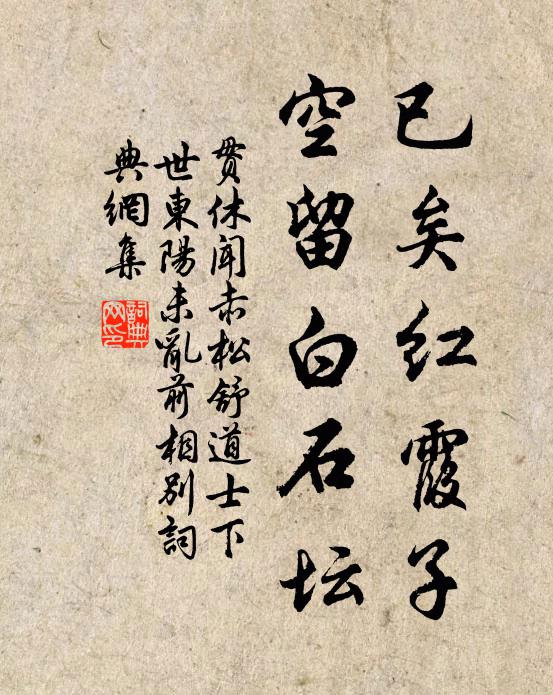 已矣红霞子
空留白石坛
贯休闻赤松舒道士下
世東陽未亂前相别詞
典網集
詞典网印